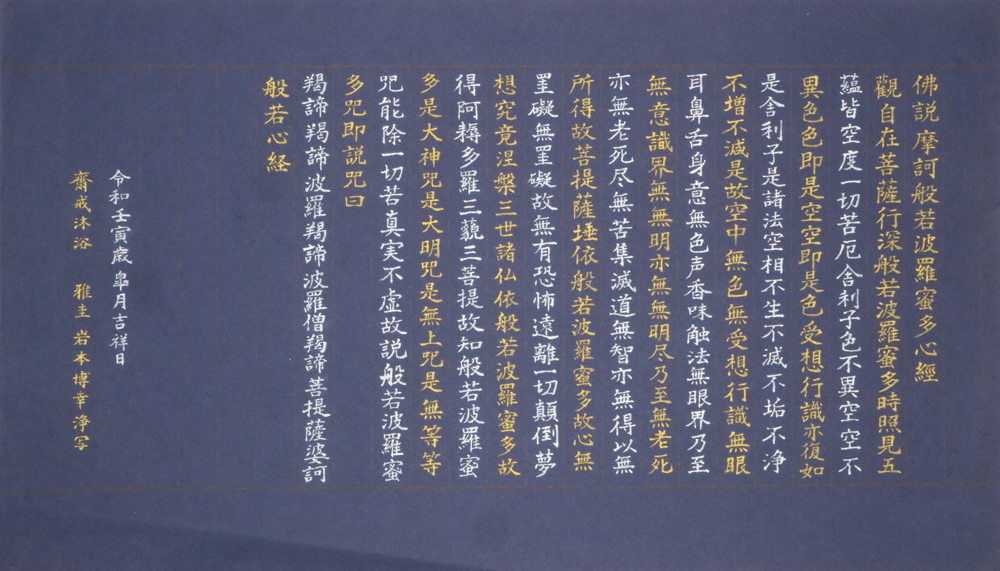 佛説摩訶般若波羅蜜多心經
觀自在菩薩行深般若波羅蜜多時照見五
蘊皆空度一切苦厄舎利子色不異空空不
異色色即是空空即是色受想行識亦復如
是舎利子是諸法空相不生不滅不垢不浄
不増不減是故空中無色無受想行識無眼
耳鼻舌身意無色声香味触法無眼界乃至
無意識界無無明亦無無明尽乃至無老死
亦無老死尽無苦集滅道無智亦無得以無
所得故菩提薩埵依般若波羅蜜多故心無
罣礙無罣礙故無有恐怖遠離一切顛倒夢
想究竟涅槃三世諸仏依般若波羅蜜多故
得阿耨多羅三藐三菩提故知般若波羅蜜
多是大神咒是大明咒是無上咒是無等等
咒能除一切苦真実不虚故説般若波羅蜜
多咒即説咒曰
羯諦羯諦波羅羯諦波羅僧羯諦菩提薩婆訶
般若心経
令和壬寅歳皐月吉祥日
齋戒沐浴　雅圭岩本博幸浄写